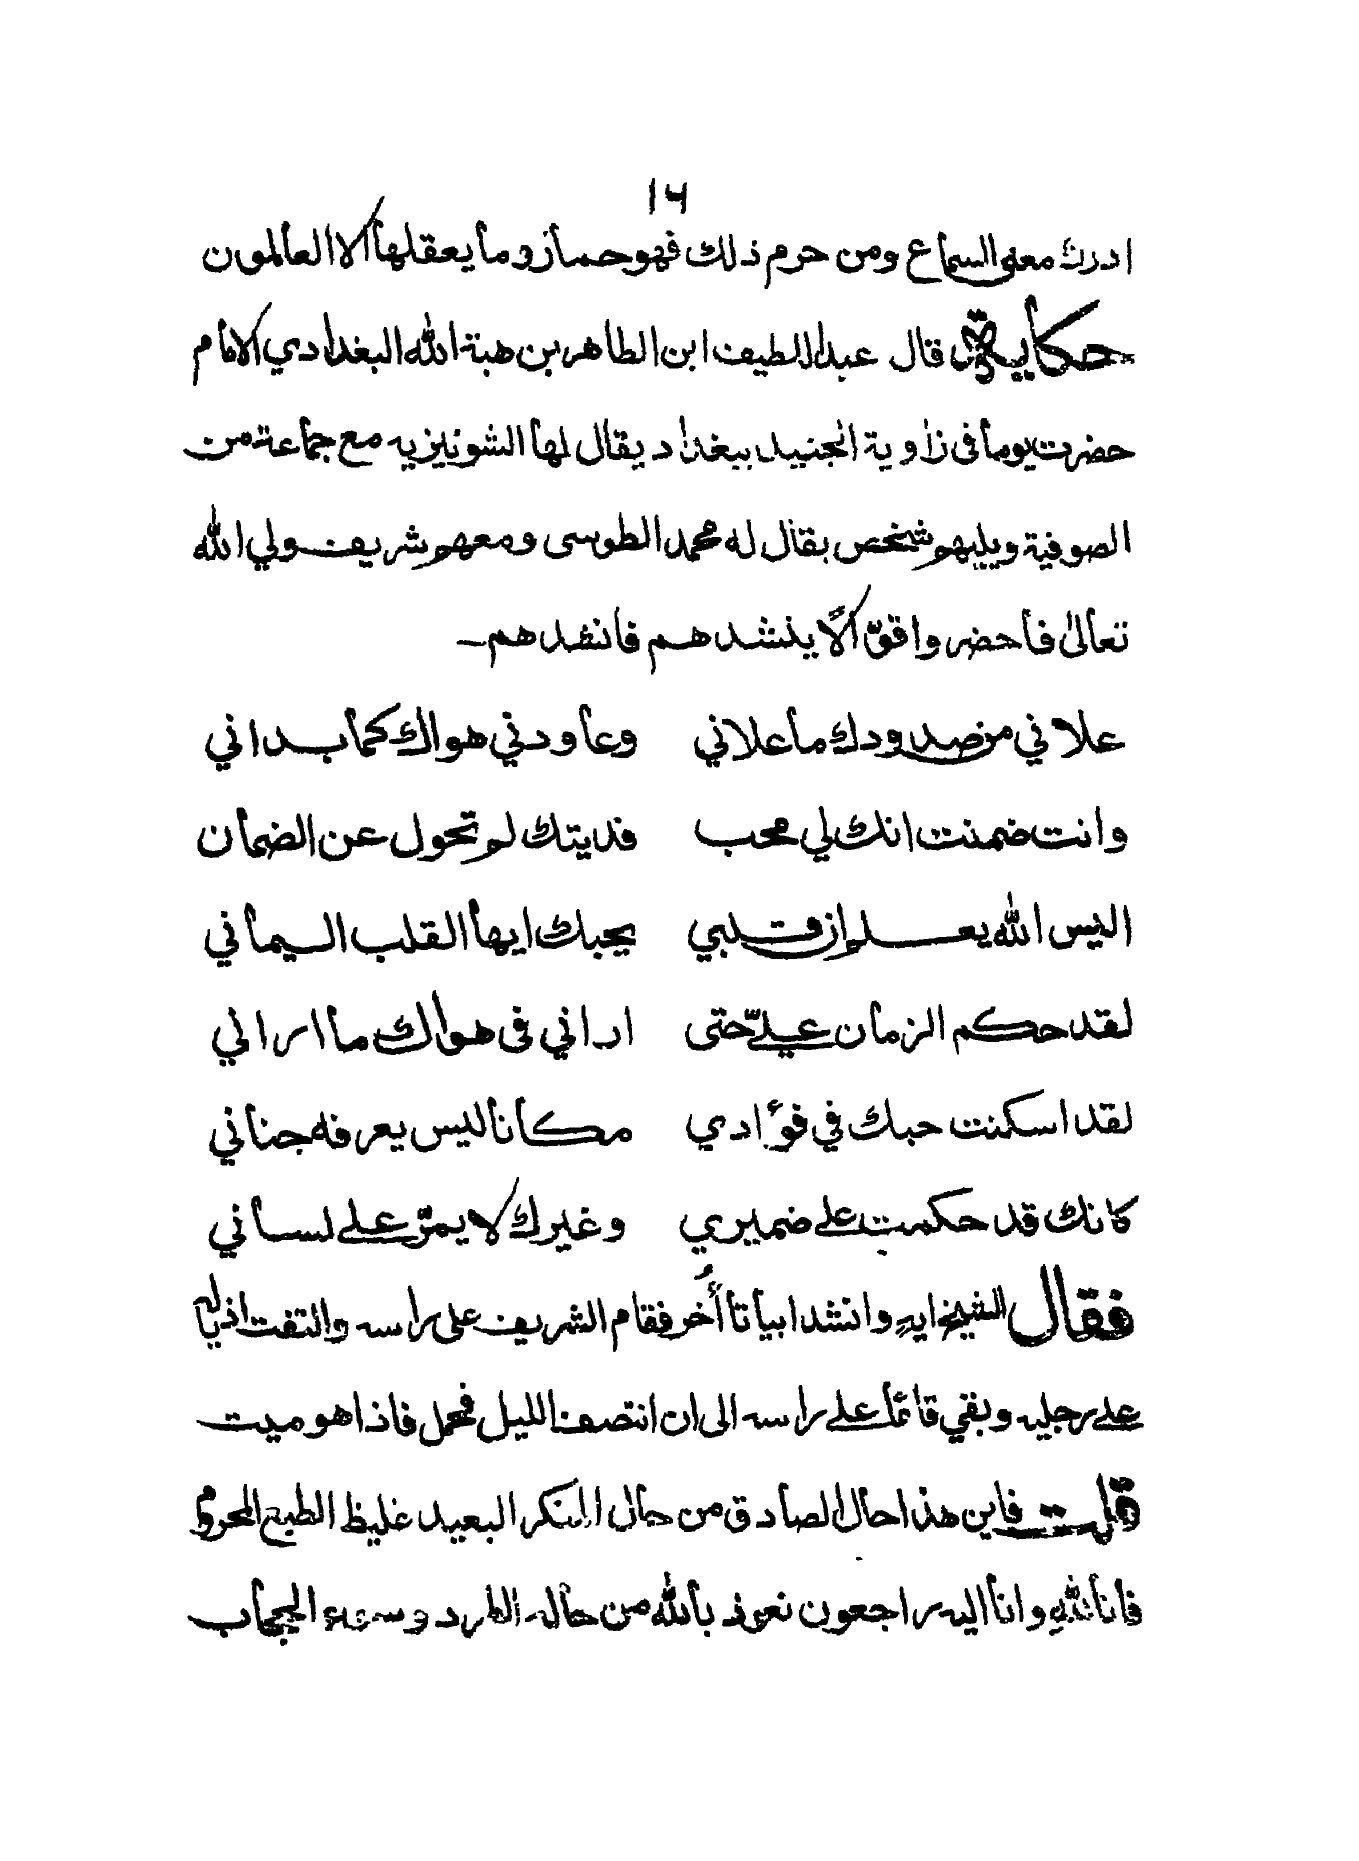 ١٦
ادرك معنى السماع ومن حرم ذلك فهو حمار وما يعقلها الا العالمون
حكاية قال عبد اللطيف ابن الطاهر بن هبة الله البغدادي الامام
حضرت يوما في زاوية الجنيد ببغداد يقال لها الشونيزيه مع جماعة من
الصوفية ويليهم شخص يقال له محمد الطوسى ومعهم شريف ولي الله
تعالى فاحضر واقوّالا ينشدهم فانشدهم
علاني من صدودك ما علاني وعاودني هواك كما بداني
وانت ضمنت انك لي محب فديتك لم تحول عن الضمان
اليس الله يعلم ان قلبي يحبك ايها القلب اليماني
لقد حكم الزمان عليّ حتى اراني في هواك ما اراني
لقد اسكنت حبك في فؤادي مكانا ليس يعرفه جناني
كانك قد حكمت على ضميري وغيرك لا يمرّ على لساني
فقال الشيخ ايهٍ وانشد ابياتا أُخر فقام الشريف على راسه والتفت اذياله
على رجليه وبقي قائما على راسه الى ان انتصف الليل فحمل فاذا هو ميت
قلت فاين هذا حال الصادق من حال المنكر البعيد غليظ الطبع المحروم
فانا لله وانا اليه راجعون نعوذ بالله من حاله الطرد وسمه الحجاب